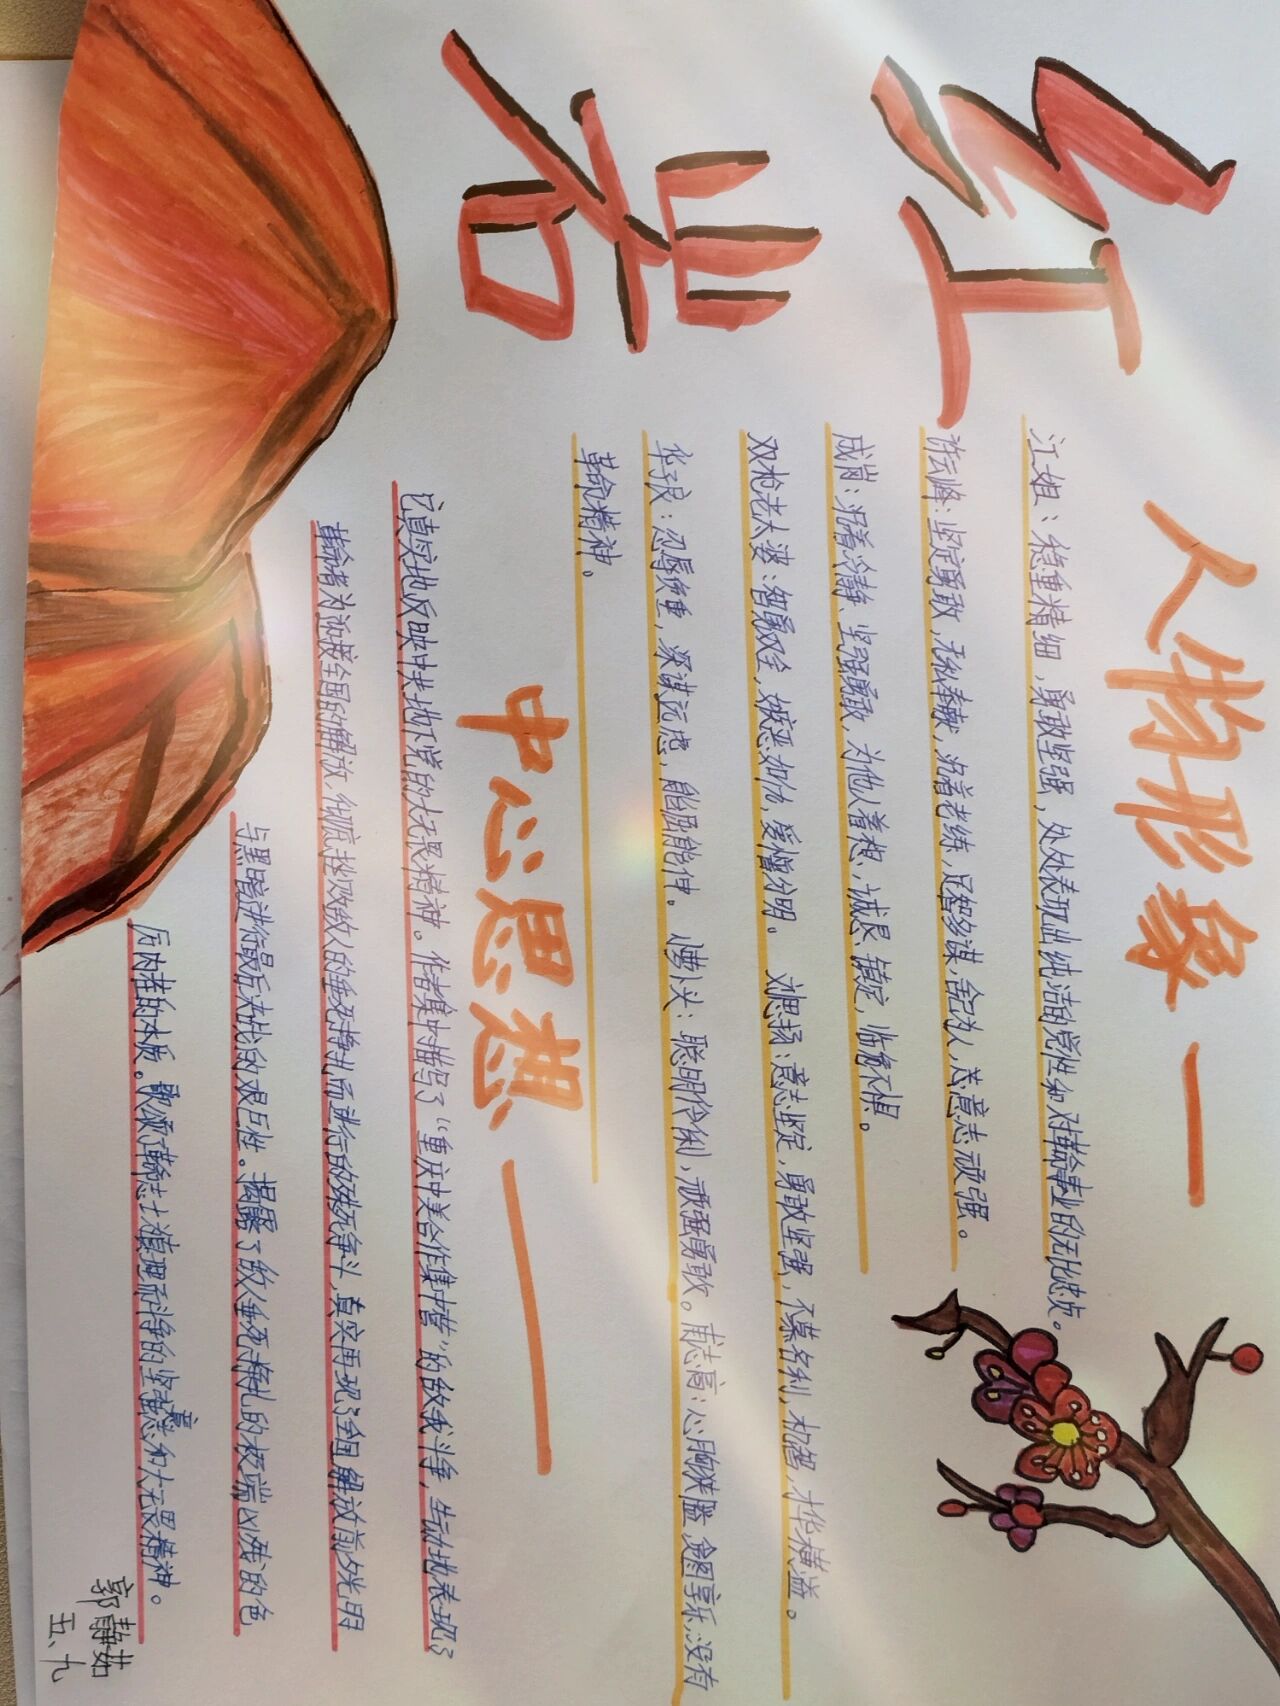 红岩
人物形象
江姐：稳重精细，勇敢坚强，处处表现出纯洁的党性和对革命事业的无比忠贞。
许云峰：坚定勇敢，无私奉献，沉着老练，足智多谋，舍己为人，意志顽强。
成岗：沉着冷静，坚强勇敢，为他人着想，诚恳，镇定，临危不惧。
双枪老太婆：智勇双全，嫉恶如仇，爱憎分明。 刘思扬：意志坚定，勇敢坚强，不慕名利，机智，才华横溢。
华子良：忍辱负重，深谋远虑，能屈能伸。 小萝卜头：聪明伶俐，顽强勇敢。甫志高：心胸狭隘，贪图享乐，没有
革命精神。
中心思想
它真实地反映中共地下党的大无畏精神。作者集中描写了“重庆中美合作集中营”的敌我斗争，生动地表现了
革命者为迎接全国的解放，彻底挫败敌人的垂死挣扎而进行的殊死争斗，真实再现了全国解放前夕光明
与黑暗进行最后决战的艰巨性。揭露了敌人垂死挣扎的极端凶残的色
厉内荏的本质。歌颂了革命志士为真理而斗争的坚强意志和大无畏精神。
郭静茹
五、九